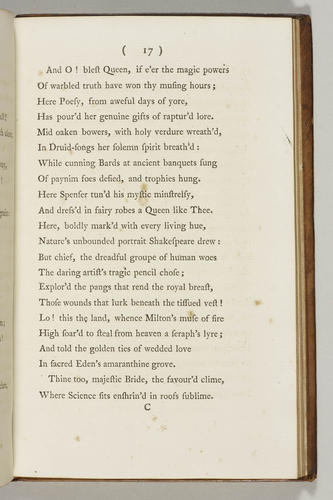 ( 17 )
And O ! bleſt Queen, if e'er the magic powers
Of warbled truth have won thy muſing hours ;
Here Poeſy, from aweful days of yore,
Has pour'd her genuine gifts of raptur'd lore.
Mid oaken bowers, with holy verdure wreath'd,
In Druid-ſongs her ſolemn ſpirit breath'd :
While cunning Bards at ancient banquets ſung
Of paynim foes defied, and trophies hung.
Here Spenſer tun'd his myſtic minſtrelſy,
And dreſs'd in fairy robes a Queen like Thee.
Here, boldly mark'd with every living hue,
Nature's unbounded portrait Shakeſpeare drew :
But chief, the dreadful groupe of human woes
The daring artiſt's tragic pencil choſe ;
Explor'd the pangs that rend the royal breaſt,
Thoſe wounds that lurk beneath the tiſſued veſt !
Lo ! this the land, whence Milton's muſe of fire
High ſoar'd to ſteal from heaven a ſeraph's lyre ;
And told the golden ties of wedded love
In ſacred Eden's amaranthine grove.
Thine too, majeſtic Bride, the favour'd clime,
Where Science ſits enſhrin'd in roofs ſublime.
C